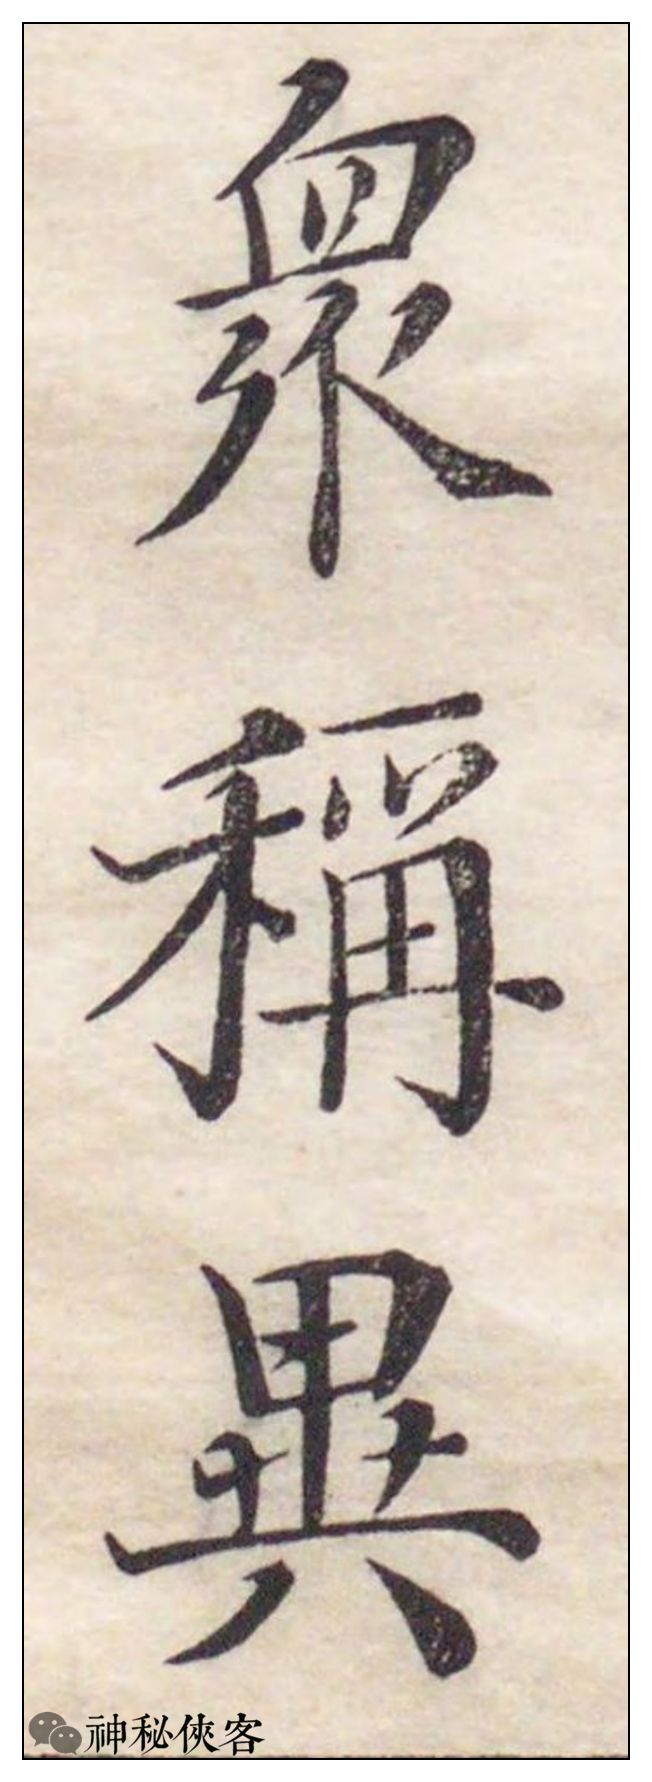 眾稱異
神秘俠客